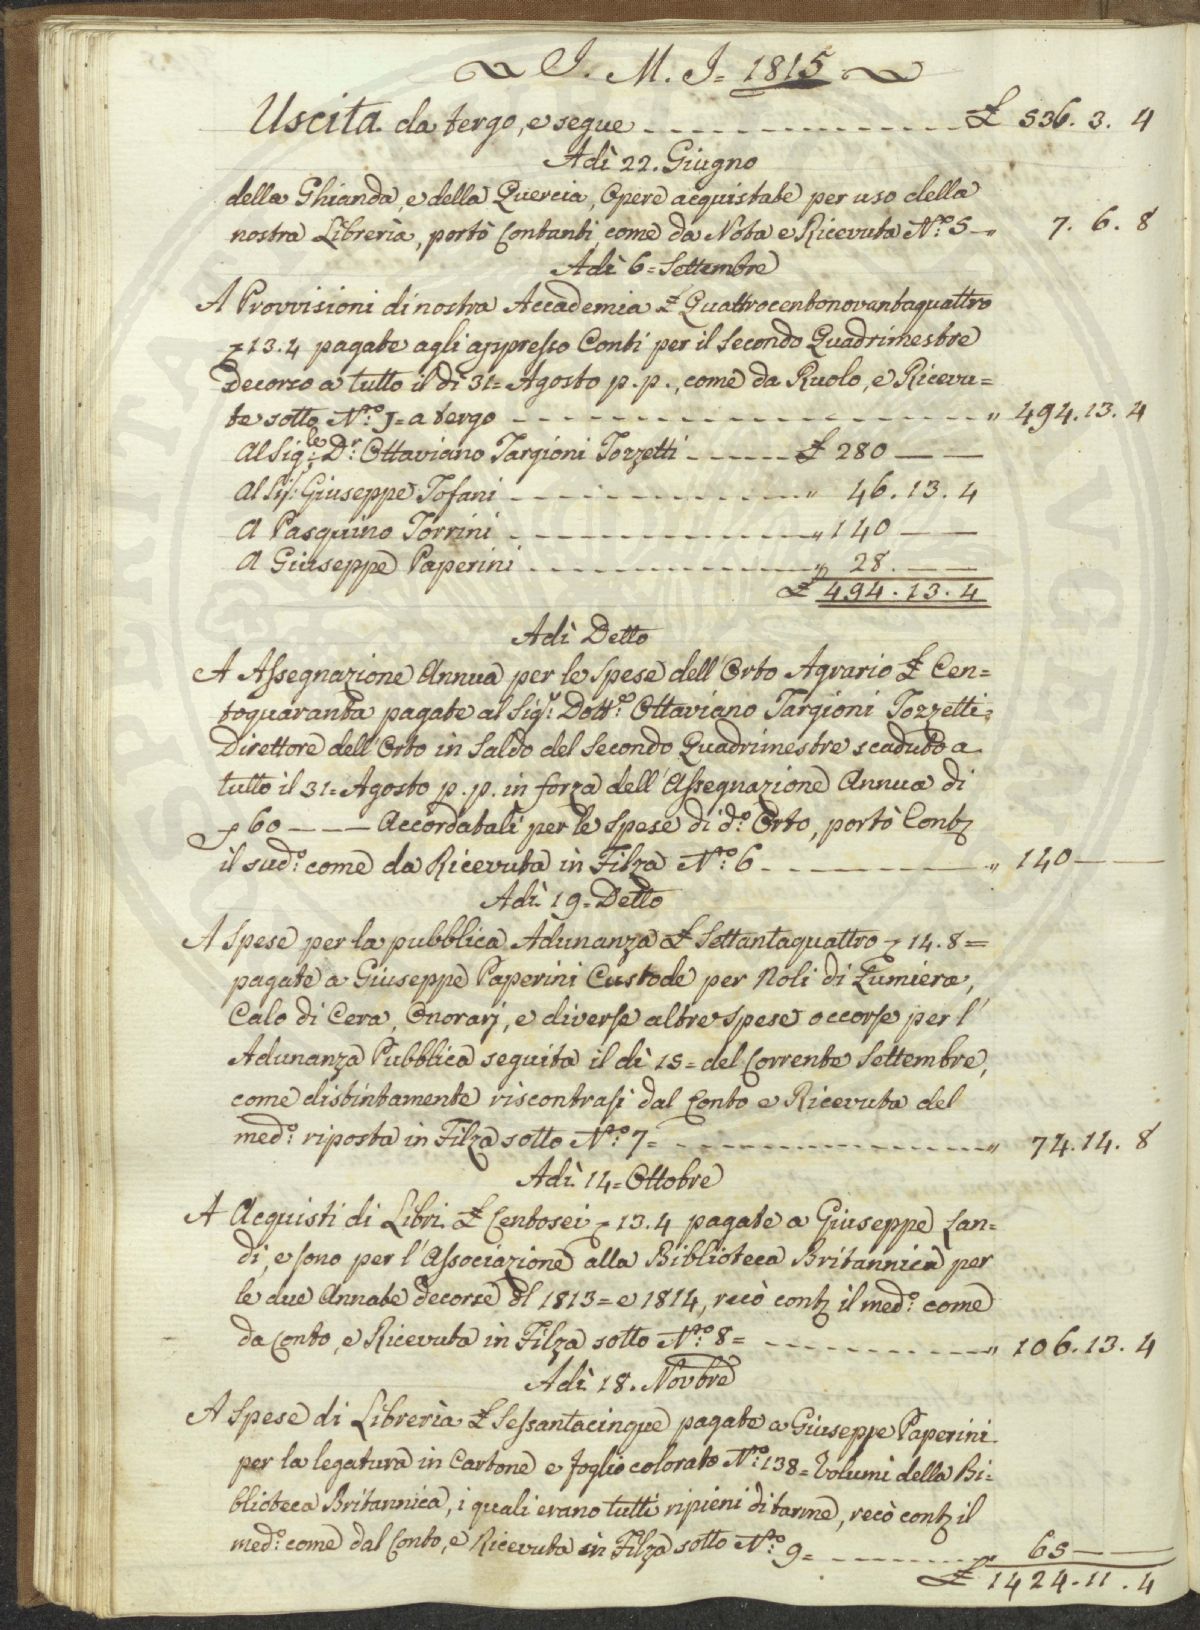 J. M. J. 1815
Uscita da tergo, e segue £ 536. 3. 4
Adì 22. Giugno
della Ghianda, e della Quercia, Opere acquistate per uso della
nostra Libreria, portò Contanti come da Nota e Ricevuta N.o 5 " 7. 6. 8
Adì 6= Settembre
A Provvisioni di nostra Accademia £ Quattrocentonovantaquattro
13.4 pagate agli appresso Conti per il Secondo Quadrimestre
Decorso a tutto il dì 31= Agosto p. p., come da Ruolo, e Ricevu=
te sotto N.o J= a tergo " 494.13.4
Al Sig.le D.r Ottaviano Targioni Tozzetti £ 280 — —
Al Sig.r Giuseppe Tofani " 46.13.4
A Pasquino Torrini " 140 — —
A Giuseppe Paperini " 28. — —
£ 494.13.4
Adì Detto
A Assegnazione Annua per le Spese dell'Orto Agrario £ Cen=
toquaranta pagate al Sig.r Dott.o Ottaviano Targioni Tozzetti
Direttore dell'Orto in Saldo del Secondo Quadrimestre scaduto a
tutto il 31= Agosto p. p. in forza dell'Assegnazione Annua di
60 — — — Accordatali per le Spese di d.o Orto, portò Cont
il sud.o come da Ricevuta in Filza N.o 6 " 140 — —
Adì 19= Detto
A Spese per la pubblica Adunanza £ Settantaquattro 14.8=
pagate a Giuseppe Paperini Custode per Noli di Lumiere,
Calo di Cera, Onorarj, e diverse altre Spese occorse per l'
Adunanza Pubblica seguita il dì 15= del Corrente Settembre,
come distintamente riscontrasi dal Conto e Ricevuta del
med.o riposta in Filza sotto N.o 7= " 74.14.8
Adì 14= Ottobre
A Acquisti di Libri £ Centosei 13.4 pagate a Giuseppe Lan=
di, e sono per l'Associazione alla Biblioteca Britannica per
le due Annate decorse dl 1813= e 1814, recò cont il med.o come
da Conto, e Ricevuta in Filza sotto N.o 8= " 106.13.4
Adì 18. Novbre
A Spese di Libreria £ Sessantacinque pagate a Giuseppe Paperini
per la legatura in Cartone e foglio colorato N.o 138= Volumi della Bi=
blioteca Britannica, i quali erano tutti ripieni di tarme, recò cont il
med.o come dal Conto, e Ricevuta in Filza sotto N.o 9= " 65 — —
£ 1424.11.4